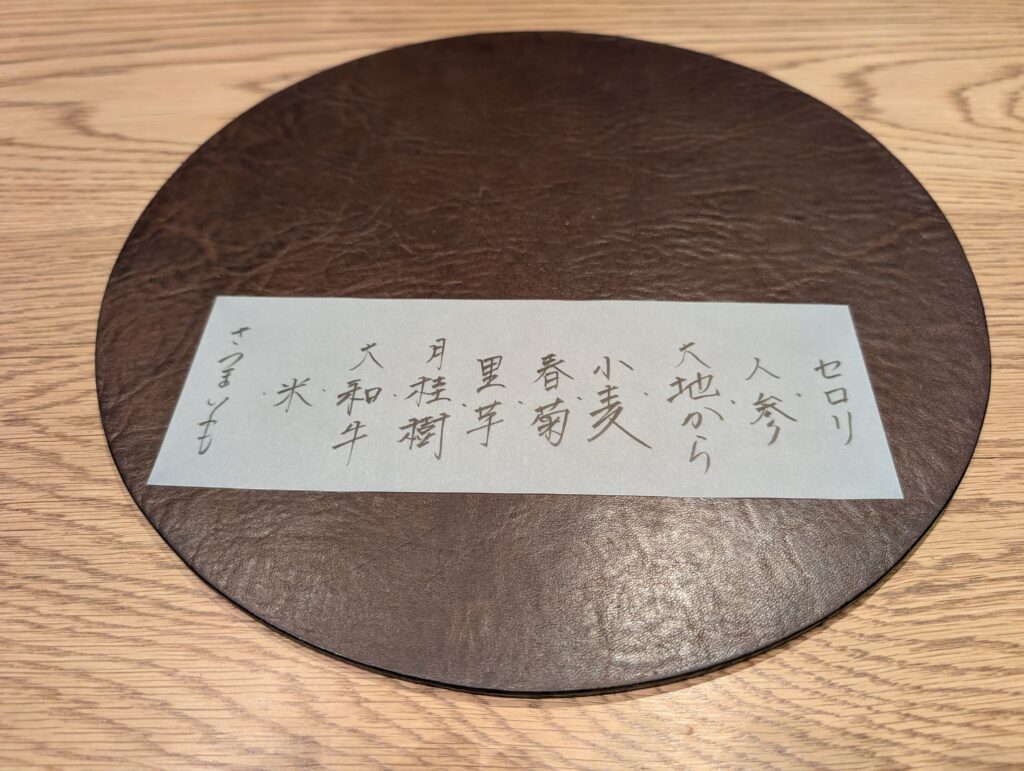 セロリ
・
人参
・
大地から
・
小麦
・
春菊
・
里芋
・
月桂樹
・
大和牛
・
米
さつまいも